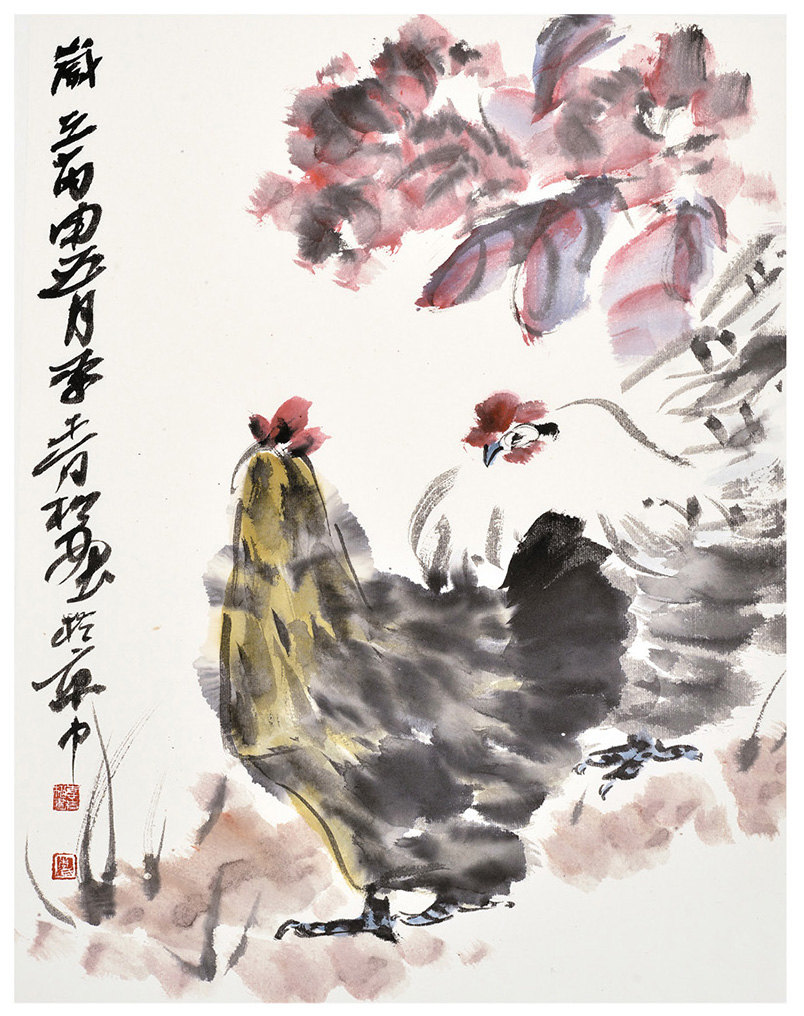 歲在丙申五月李青松畫於京中